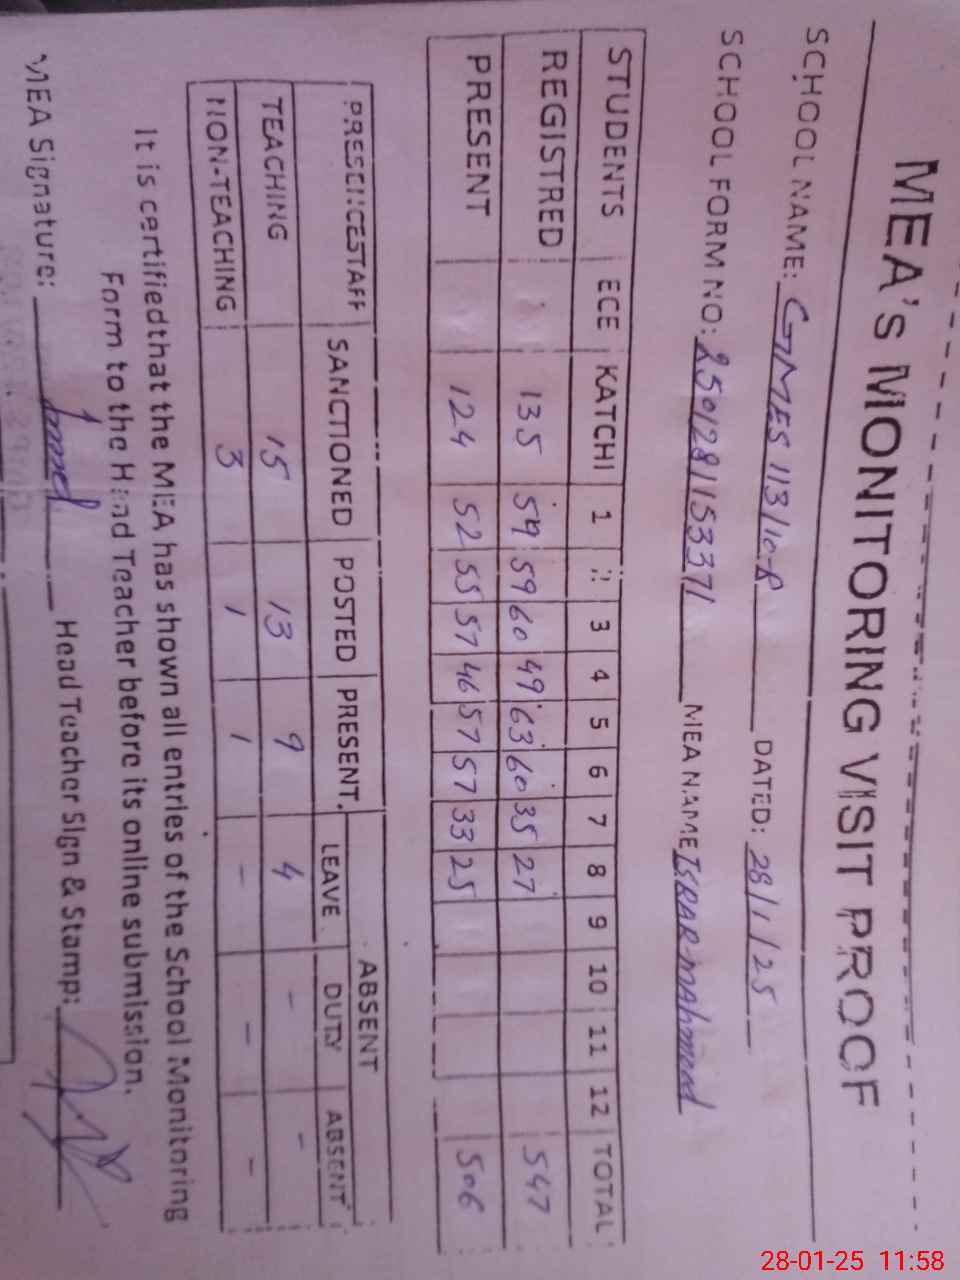 MEA'S MONITORING VISIT PROOF
SCHOOL NAME: GMES 113/10-R DATED: 28/1/25
SCHOOL FORM NO: 2501281153371 MEA NAME ISRAR-MAhmed
STUDENTS ECE KATCHI 1 2 3 4 5 6 7 8 9 10 11 12 TOTAL
REGISTRED 135 59 59 60 49 63 60 35 27 547
PRESENT 124 52 55 57 46 57 57 33 25 506
ABSENT
PRESENCE STAFF SANCTIONED POSTED PRESENT LEAVE DUTY ABSENT
TEACHING 15 13 9 4 - -
NON-TEACHING 3 1 1 - - -
It is certified that the MEA has shown all entries of the School Monitoring
Form to the Head Teacher before its online submission.
MEA Signature: Head Teacher Sign & Stamp:
28-01-25 11:58